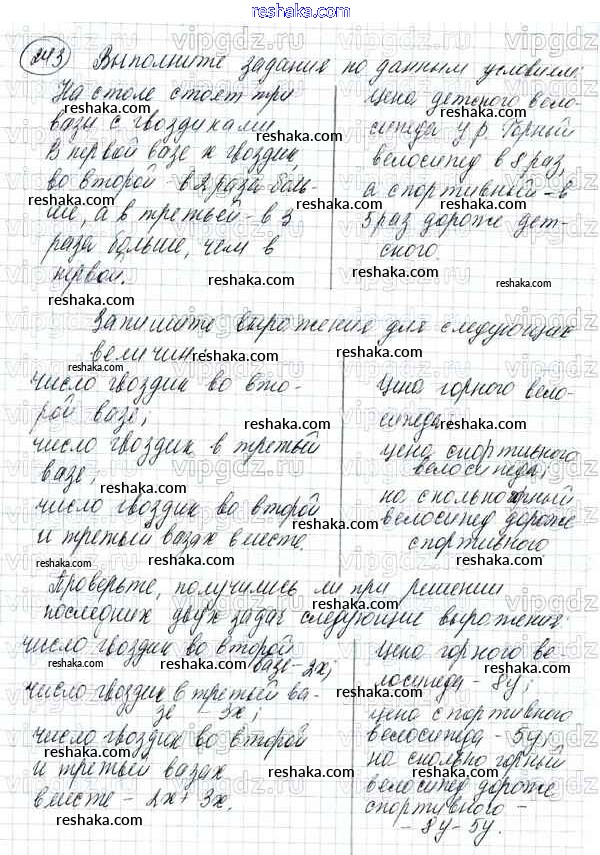 reshaka.com
243 Выполните задания по данным условиям:
На столе стоят три
вазы с гвоздиками.
В первой вазе x гвоздик,
во второй - в 2 раза боль-
ше, а в третьей - в 3
раза больше, чем в
первой.
Цена детского вело-
сипеда y р. Горный
велосипед в 8 раз,
а спортивный - в
5 раз дороже дет-
ского.
Запишите выражения для следующих
величин:
число гвоздик во вто-
рой вазе;
число гвоздик в третьей
вазе;
число гвоздик во второй
и третьей вазах вместе.
Цена горного вело-
сипеда;
цена спортивного
велосипеда;
на сколько горный
велосипед дороже
спортивного
Проверьте, получились ли при решении
последних двух задач следующие выражения:
число гвоздик во второй
вазе - 2x;
число гвоздик в третьей ва-
зе - 3x;
число гвоздик во второй
и третьей вазах
вместе - 2x + 3x.
Цена горного ве-
лосипеда - 8y;
цена спортивного
велосипеда - 5y;
на сколько горный
велосипед дороже
спортивного -
- 8y - 5y.
reshaka.com